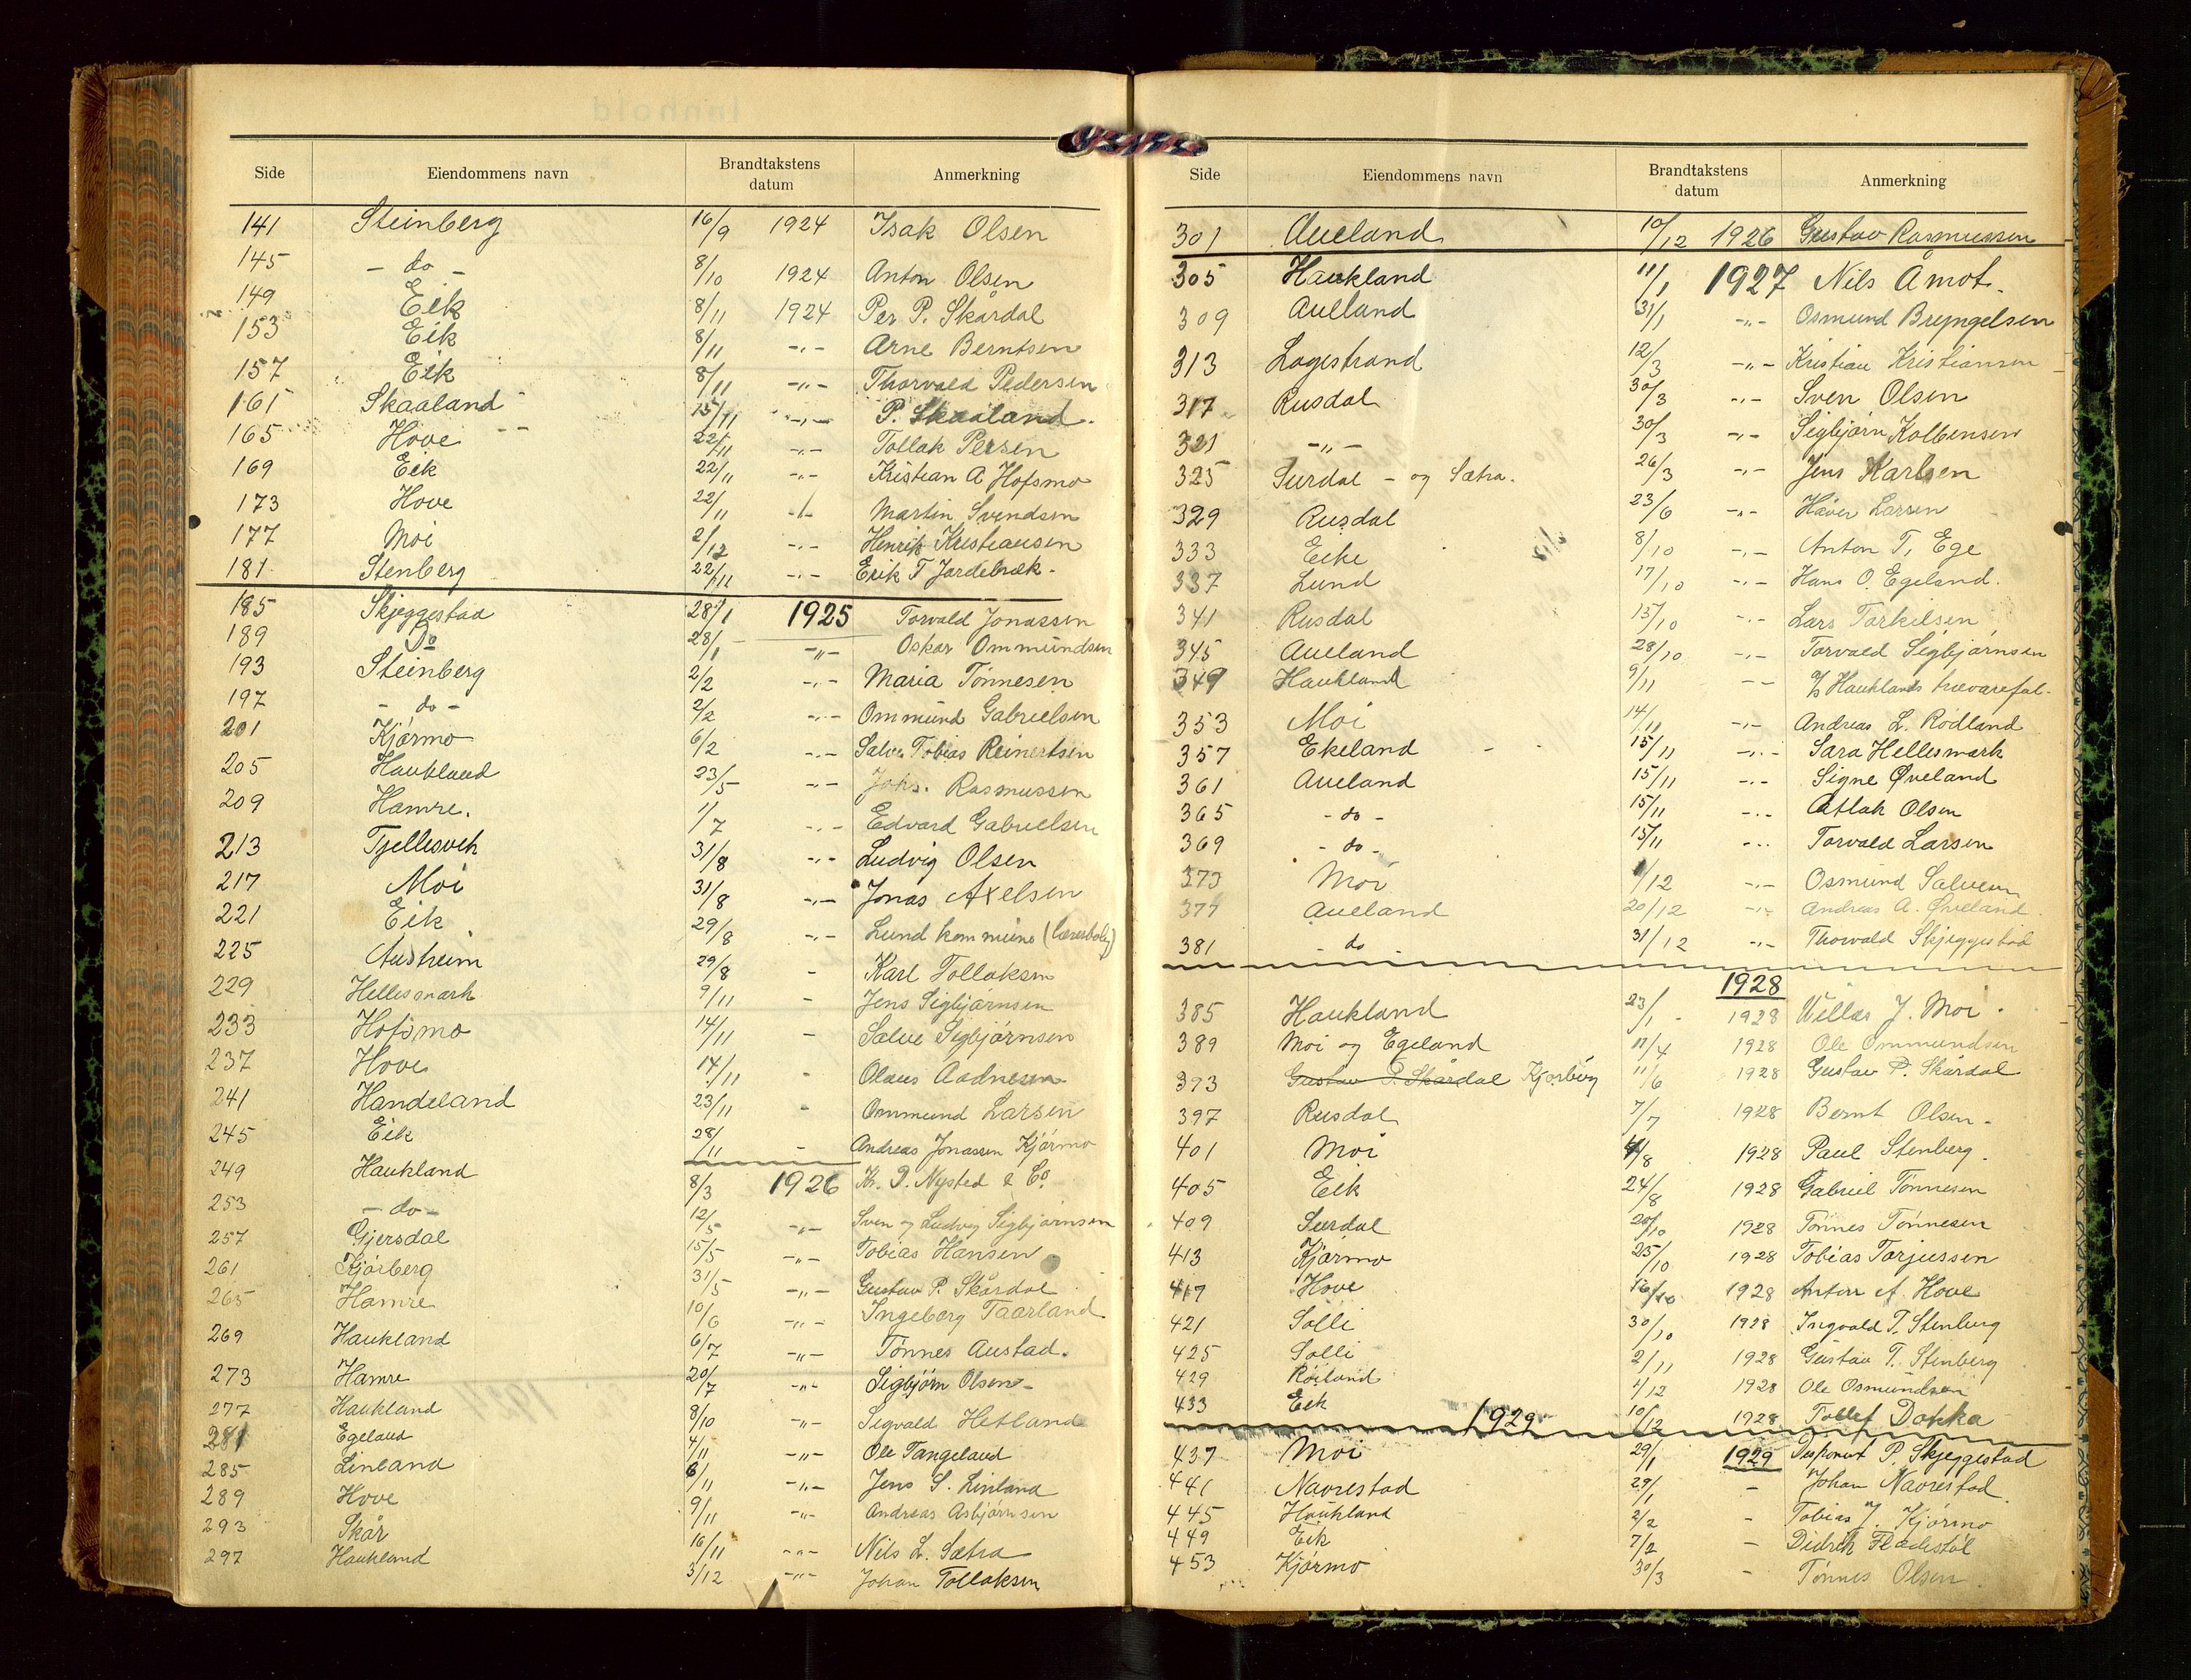 Side Eiendommens navn Brandtakstens datum Anmerkning
141 Steinberg 16/9 1924 Isak Olsen
145 - do - 8/10 1924 Anton Olsen
149 Eik 8/11 1924 Per P. Skårdal
153 Eik 8/11 -"- Arne Berntsen
157 Eik 8/11 -"- Thorvald Pedersen
161 Skaaland 15/11 -"- P. Skaaland.
165 Hove 22/11 -"- Tollak Persen
169 Eik 22/11 -"- Kristian A Hofsmo
173 Hove 22/11 -"- Martin Svendsen
177 Moi 2/12 -"- Henrik Kristiansen
181 Stenberg 22/11 -"- Erik T Jordebræk.
185 Skjeggestad 28/1 1925 Torvald Jonassen
189 Do 28/1 -"- Oskar Ommundsen
193 Steinberg 2/2 -"- Maria Tønnesen
197 - do - 2/2 -"- Ommund Gabrielsen
201 Kjørmo 6/2 -"- Salve Tobias Reinertsen
205 Haukland 23/5 -"- Johs. Rasmussen
209 Hamre. 1/7 -"- Edvard Gabrielsen
213 Tjellesvik 31/8 -"- Ludvig Olsen
217 Moi 31/8 -"- Jonas Axelsen
221 Eik 29/8 -"- Lund kommune (lærerbolig)
225 Austreim 29/8 - Karl Tollaksen
229 Hellesmark 9/11 - Jens Sigbjørnsen
233 Hofsmo 14/11 - Salve Sigbjørnsen
237 Hove 14/11 - Olaus Aadnesen
241 Handeland 23/11 - Ommund Larsen
245 Eik 28/11 - Andreas Jonassen Kjørmo
249 Haukland 8/3 1926 Kr. P. Nysted & Co.
253 - do - 12/5 -"- Sven og Ludvig Sigbjørnsen
257 Gjersdal 15/5 -"- Tobias Hansen
261 Kjørberg 31/5 -"- Gustav P. Skårdal
265 Hamre 10/6 -"- Ingeborg Taarland
269 Haukland 6/7 -"- Tønnes Austad.
273 Hamre 20/7 -"- Sigbjørn Olsen
277 Haukland 8/10 -"- Sigvald Hetland
281 Egeland 4/11 -"- Ole Tangeland
285 Linland 6/11 -"- Jens S. Linland
289 Hove 9/11 -"- Andreas Asbjørnsen
293 Skår 16/11 -"- Nils L. Sætra
297 Haukland 3/12 -"- Johan Tollaksen
Side Eiendommens navn Brandtakstens datum Anmerkning
301 Aueland 10/12 1926 Gustav Rasmussen
305 Haukland 11/1 1927 Nils Åmot.
309 Aueland 31/1 -"- Osmund Bryngelsen
313 Lagestrand 12/3 -"- Kristian Kristiansen
317 Rusdal 30/3 -"- Sven Olsen
321 -"- 30/3 -"- Sigbjørn Kolbensen
325 Surdal - og Sætra. 26/3 -"- Jens Karlsen
329 Rusdal 23/6 -"- Håver Larsen
333 Eike 8/10 -"- Anton T. Ege
337 Lund 17/10 -"- Hans O. Egeland.
341 Rusdal 15/10 -"- Lars Torkelsen
345 Aueland 28/10 -"- Torvald Sigbjørnsen
349 Haukland 9/11 - - A/S Hauklands trævarefab.
353 Moi 14/11 -"- Andreas L. Rødland
357 Ekeland 15/11 -"- Sara Hellesmark
361 Aueland 15/11 -"- Signe Øveland
365 - do - 15/11 -"- Atlak Olsen
369 - do - 15/11 -"- Torvald Larsen
373 Moi 1/12 -"- Osmund Salvesen
377 Aueland 20/12 -"- Andreas A. Øveland.
381 - do - 31/12 -"- Thorvald Skjeggestad
1928
385 Haukland 23/1 1928 Willas J. Moi.
389 Moi og Egeland 11/4 1928 Ole Ommundsen
393 Gustav P. Skårdal Kjørberg 11/6 1928 Gustav P. Skårdal
397 Rusdal 7/7 1928 Bernt Olsen
401 Moi 4/8 1928 Paul Stenberg.
405 Eik 24/8 1928 Gabriel Tønnesen
409 Surdal 20/10 1928 Tønnes Tønnesen
413 Kjørmo 25/10 1928 Tobias Torjussen
417 Hove 16/10 1928 Anton A. Hove
421 Solli 30/10 1928 Ingvald T. Stenberg
425 Solli 2/11 1928 Gustav T. Stenberg
429 Røiland 4/12 1928 Ole Osmundsen
433 Eik 10/12 1928 Tollef Dokka
1929
437 Moi 29/1 1929 P. Skjeggestad
441 Navrestad 29/1 - Johan Navrestad.
445 Haukland 2/2 - Tobias J. Kjørmo
449 Eik 7/2 - Didrik Fladestøl
453 Kjørmo 30/3 - Tønnes Olsen.